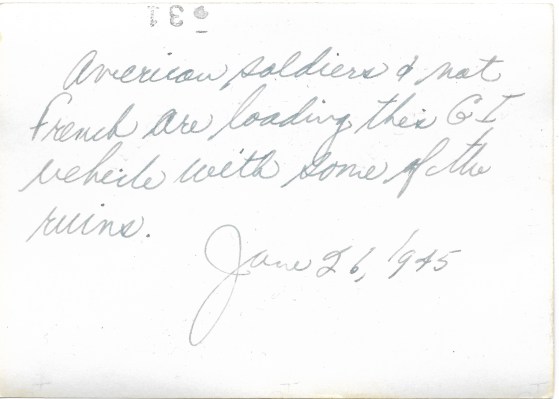 31
American soldiers & not
French are loading this GI
vehicle with some of the
ruins.
June 26, 1945